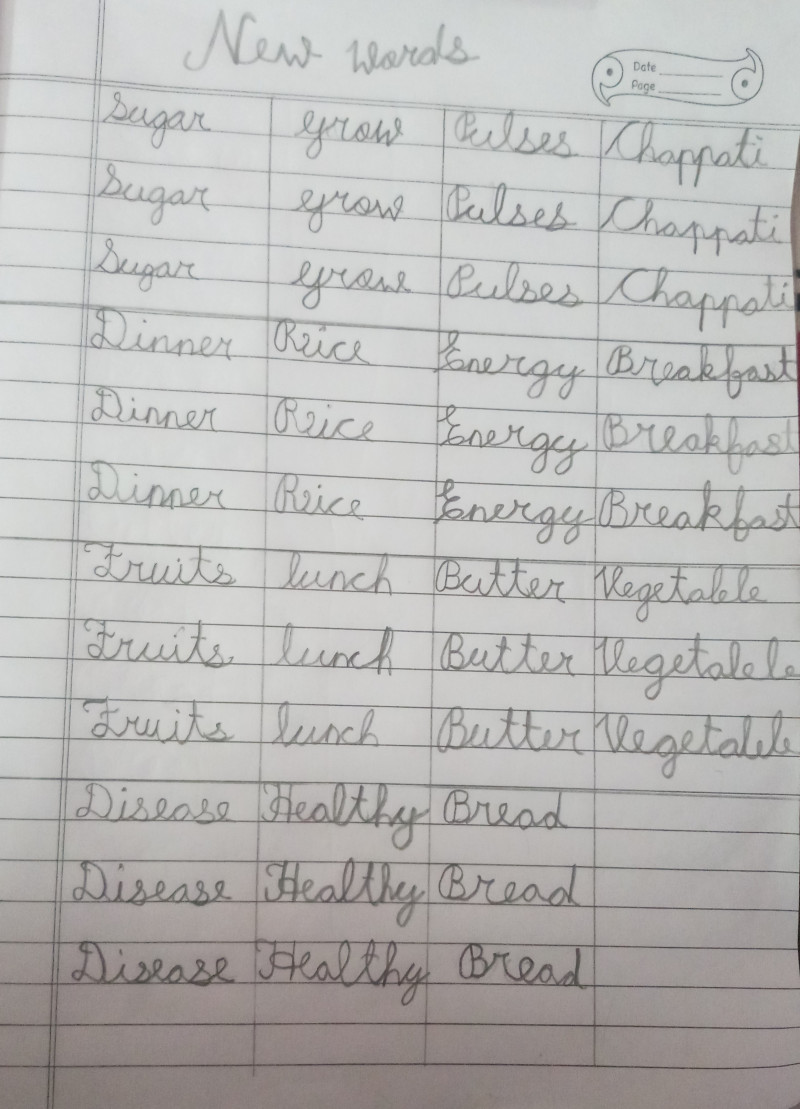 New words
Date
Page
Sugar grow Pulses Chappati
Sugar grow Pulses Chappati
Sugar grow Pulses Chappati
Dinner Rice Energy Breakfast
Dinner Rice Energy Breakfast
Dinner Rice Energy Breakfast
Fruits lunch Butter Vegetable
Fruits lunch Butter Vegetable
Fruits lunch Butter Vegetable
Disease Healthy Bread
Disease Healthy Bread
Disease Healthy Bread